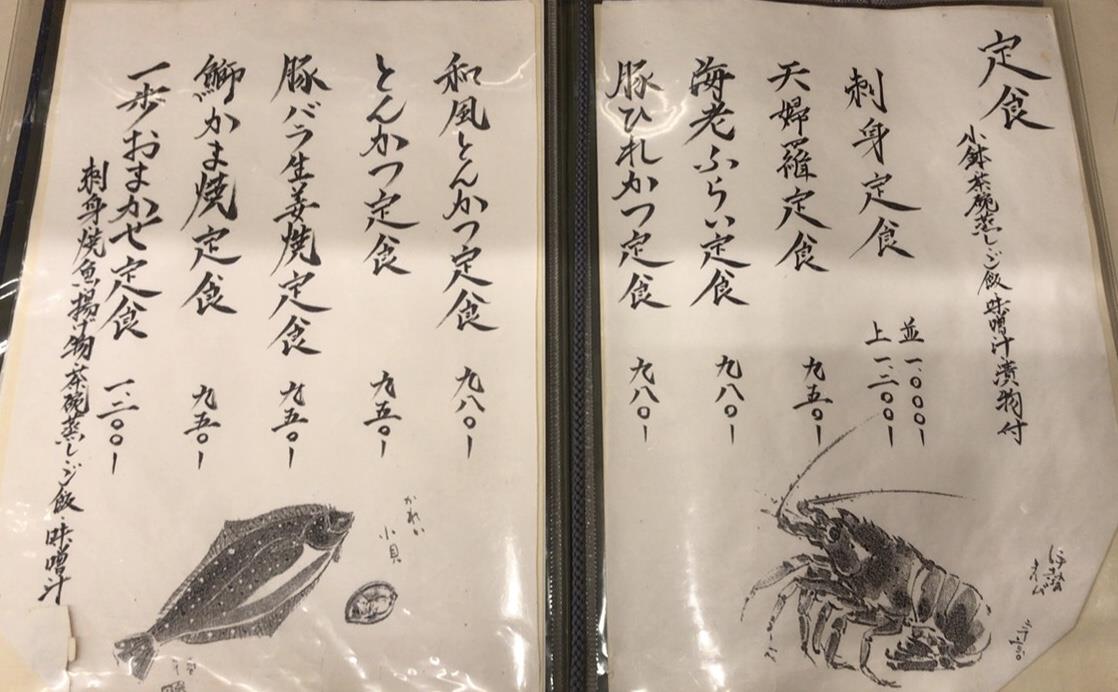 定食
小鉢茶碗蒸しご飯味噌汁漬物付
刺身定食
並 一、〇〇〇ー
上 一、二〇〇ー
天婦羅定食 九五〇ー
海老ふらい定食 九八〇ー
豚ひれかつ定食 九八〇ー
和風とんかつ定食 九八〇ー
とんかつ定食 九五〇ー
豚バラ生姜焼定食 九五〇ー
鰤かま焼定食 九五〇ー
一歩おまかせ定食 一、二〇〇ー
刺身焼魚揚げ物・茶碗蒸し・ご飯・味噌汁
かれい
小貝